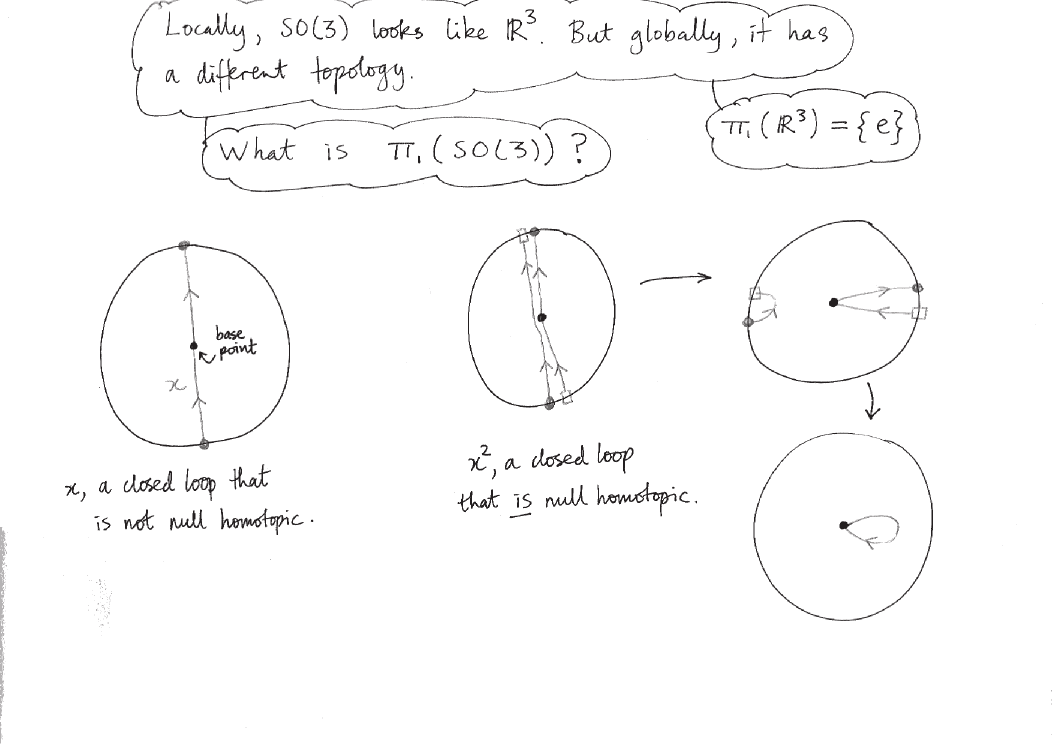 Locally, SO(3) looks like ℝ³. But globally, it has
a different topology.
π₁(ℝ³) = {e}
What is π₁(SO(3))?
base
point
x
x, a closed loop that
is not null homotopic.
x², a closed loop
that is null homotopic.